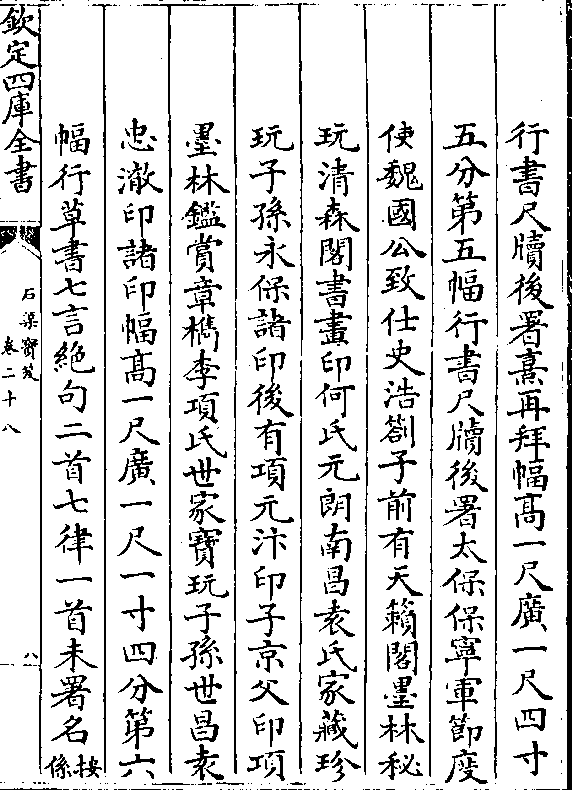 行書尺牘後署熹再拜幅髙一尺廣一尺四寸
五分第五幅行書尺牘後署太保保寧軍節度
使魏國公致仕史浩劄子前有天籟閣墨林秘
玩清森閣書畫印何氏元朗南昌袁氏家藏珍
玩子孫永保諸印後有項元汴印子京父印項
墨林鑑賞章檇李項氏世家寶玩子孫世昌袁
忠澈印諸印幅髙一尺廣一尺一寸四分第六
幅行草書七言絶句二首七律一首未署名按係
欽定四庫全書
石渠寶笈
卷二十八
八